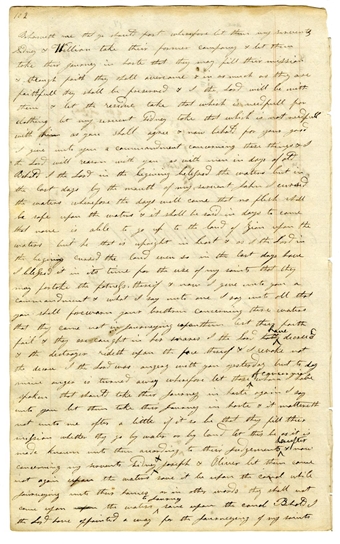 102
behooveth me that ye should part wherefore let them my servents
Sidney & William take their former company & let them
take their journey in haste that they may fill their mission
& through faith they shall overcome & in as much as they are
faithfull they shall be preserved & I the Lord will be with
them & let the residue take that which is needfull for
clothing let my servent Sidney take that which is not needfull
with him as you shall agree & now behold for your good
I give unto you a commandment concerning these things & I
the Lord will reason with you as with men in days of old
Behold I the Lord in the begining blessed the waters but in
the last days by the mouth of my servent John I cursed
the waters wherefore the days will come that no flesh shall
be safe upon the waters & it shall be said in days to come
that none is able to go up to the land of Zion upon the
waters but he that is upright in heart & as I the Lord in
the begining cursed the land even so in the last days have
I blessed it in its time for the use of my saints that they
may partake the fatness thereof & now I give unto you a
commandment & what I say unto one I say unto all that
you shall forewarn your brethren concerning these waters
that they come not in journeying upon them lest their faith
fail & they are caught in her snares I the Lord have decreed
& the destroyer rideth upon the face thereof & I revoke not
the decree I the Lord was angry with you yesterday but to day
mine anger is turned away wherefore let those concerning whom I have
spoken that should take their journey in haste again I say
unto you let them take their journey in haste & it mattereth
not unto me after a little if it so be that they fill their
mission whether they go by water or by land let this be as it is
made known unto them according to their judgements hereafter & now
concerning my servents Sidney & Joseph & Oliver let them come
not again upon the waters save it be upon the canal while
journeying unto their homes or in other words they shall not
come upon the waters to journey save upon the canal Behold I
the Lord have appointed a way for the journeying of my saints